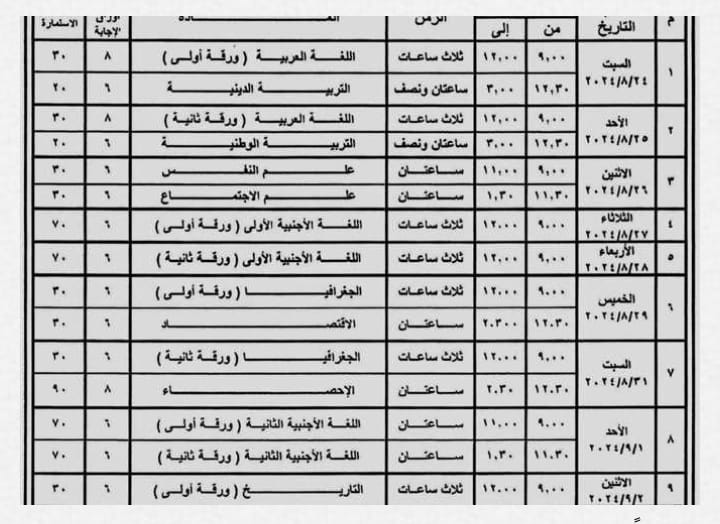 م التاريخ من إلى الزمن المـــادة الإجابة الاستمارة
١ السبت ٢٠٢٤/٨/٢٤ ٩,٠٠ ١٢,٠٠ ثلاث ساعـات اللغـــة العربيـــة ( ورقـة أولـى ) ٨ ٣٠
١٢,٣٠ ٣,٠٠ ساعتان ونصف التربيـــة الدينيـــة ٦ ٢٠
٢ الأحد ٢٠٢٤/٨/٢٥ ٩,٠٠ ١٢,٠٠ ثلاث ساعـات اللغـــة العربيـــة ( ورقـة ثانيـة ) ٨ ٣٠
١٢,٣٠ ٣,٠٠ ساعتان ونصف التربيـــة الوطنيـــة ٦ ٢٠
٣ الاثنين ٢٠٢٤/٨/٢٦ ٩,٠٠ ١١,٠٠ ســاعتــان علـــم النفـــس ٦ ٣٠
١١,٣٠ ١,٣٠ ســاعتــان علـــم الاجتمـــاع ٦ ٣٠
٤ الثلاثاء ٢٠٢٤/٨/٢٧ ٩,٠٠ ١٢,٠٠ ثلاث ساعـات اللغـــة الأجنبية الأولى ( ورقـة أولـى ) ٦ ٧٠
٥ الأربعاء ٢٠٢٤/٨/٢٨ ٩,٠٠ ١٢,٠٠ ثلاث ساعـات اللغـــة الأجنبية الأولى ( ورقـة ثانيـة ) ٦ ٧٠
٦ الخميس ٢٠٢٤/٨/٢٩ ٩,٠٠ ١٢,٠٠ ثلاث ساعـات الجغرافيـــا ( ورقـة أولـى ) ٦ ٣٠
١٢,٣٠ ٢,٣٠٠ ســاعتــان الاقتصـــاد ٦ ٣٠
٧ السبت ٢٠٢٤/٨/٣١ ٩,٠٠ ١٢,٠٠ ثلاث ساعـات الجغرافيـــا ( ورقـة ثانيـة ) ٦ ٣٠
١٢,٣٠ ٢,٣٠ ســاعتــان الإحصـــاء ٨ ٩٠
٨ الأحد ٢٠٢٤/٩/١ ٩,٠٠ ١١,٠٠ ســاعتــان اللغـــة الأجنبية الثانيـة ( ورقـة أولـى ) ٦ ٧٠
١١,٣٠ ١,٣٠ ســاعتــان اللغـــة الأجنبية الثانيـة ( ورقـة ثانيـة ) ٦ ٧٠
٩ الاثنين ٢٠٢٤/٩/٢ ٩,٠٠ ١٢,٠٠ ثلاث ساعـات التاريـــخ ( ورقـة أولـى ) ٦ ٣٠